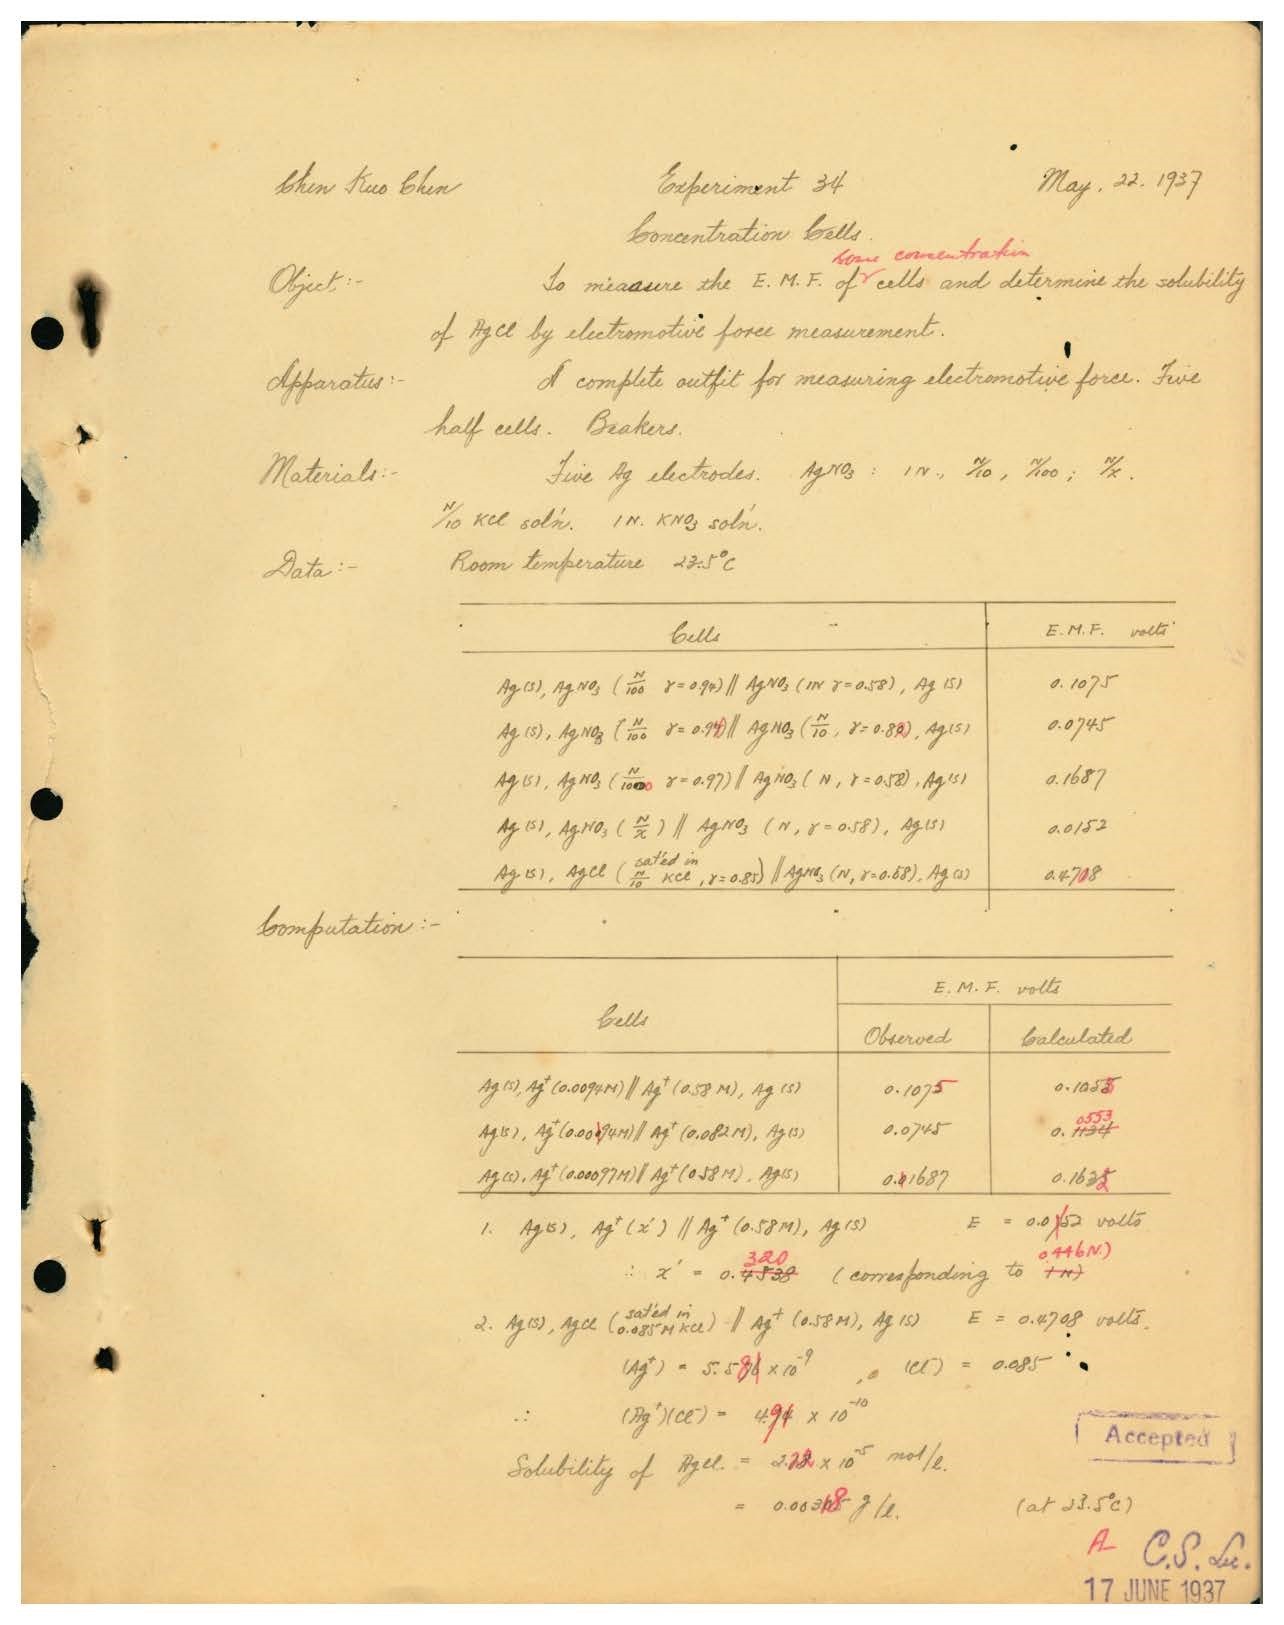 Chen Kuo Chen Experiment 34 May. 22. 1937
Concentration Cells.
some concentration
Object:- To measure the E.M.F. of cells and determine the solubility
of AgCl by electromotive force measurement.
Apparatus:- A complete outfit for measuring electromotive force. Five
half cells. Beakers.
Materials:- Five Ag electrodes. AgNO3 : 1N., N/10, N/100; N/x.
N/10 KCl sol'n. 1N. KNO3 sol'n.
Data:- Room temperature 23.5°C
Cells E.M.F. volts
Ag(s), AgNO3 (N/100 γ=0.94) // AgNO3 (1N γ=0.58), Ag(s) 0.1075
Ag(s), AgNO3 (N/100 γ=0.94) // AgNO3 (N/10, γ=0.82), Ag(s) 0.0745
Ag(s), AgNO3 (N/1000 γ=0.97) // AgNO3 (N, γ=0.58), Ag(s) 0.1687
Ag(s), AgNO3 (N/x) // AgNO3 (N, γ=0.58), Ag(s) 0.0152
Ag(s), AgCl (sat'ed in N/10 KCl, γ=0.85) // AgNO3 (N, γ=0.58), Ag(s) 0.4708
Computation:-
E.M.F. volts
Cells Observed Calculated
Ag(s), Ag+ (0.0094M) // Ag+ (0.58M), Ag(s) 0.1075 0.1053
0553
Ag(s), Ag+ (0.0094M) // Ag+ (0.082M), Ag(s) 0.0745 0.1134
Ag(s), Ag+ (0.00097M) // Ag+ (0.58M), Ag(s) 0.1687 0.1632
1. Ag(s), Ag+ (x') // Ag+ (0.58M), Ag(s) E = 0.0152 volts
320 0.446N.)
∴ x' = 0.4538 (corresponding to 1N)
2. Ag(s), AgCl (sat'ed in 0.085M KCl) // Ag+ (0.58M), Ag(s) E = 0.4708 volts.
(Ag+) = 5.58 × 10-9, (Cl-) = 0.085
∴ (Ag+)(Cl-) = 4.94 × 10-10
Solubility of AgCl = 2.22 × 10-5 mol/l.
= 0.00318 g/l. (at 23.5°C)
Accepted
A C.S. Lu.
17 JUNE 1937